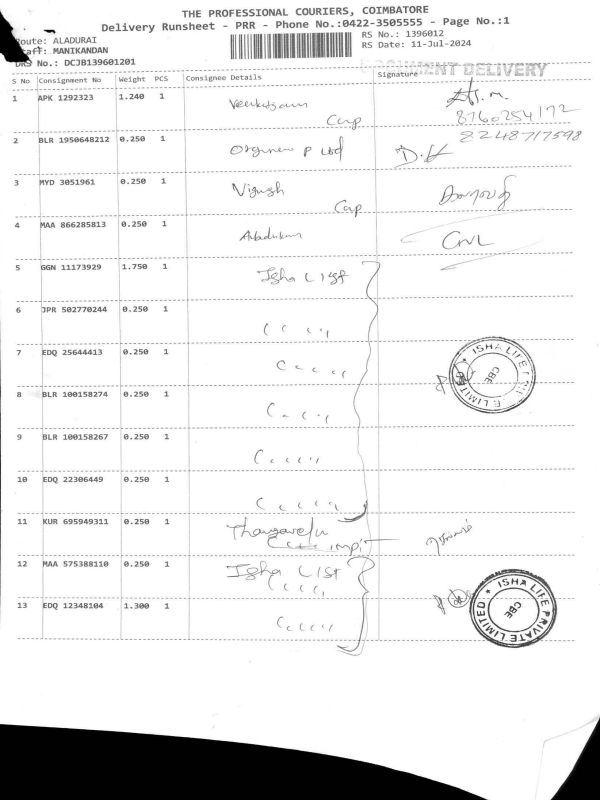 THE PROFESSIONAL COURIERS, COIMBATORE
Delivery Runsheet - PRR - Phone No.:0422-3505555 - Page No.:1
Route: ALADURAI
Staff: MANIKANDAN
RS No.: 1396012
RS Date: 11-Jul-2024
DRS No.: DCJB139601201
DOCUMENT DELIVERY
S No Consignment No Weight PCS Consignee Details Signature
1 APK 1292323 1.240 1
8760254172
2 BLR 1950648212 0.250 1 P Ltd
8248717598
3 MYD 3051961 0.250 1
4 MAA 866285813 0.250 1
5 GGN 11173929 1.750 1 Isha List
6 JPR 502770244 0.250 1
7 EDQ 25644413 0.250 1
ISHA LIFE PRIVATE LIMITED
CBE
8 BLR 100158274 0.250 1
9 BLR 100158267 0.250 1
10 EDQ 22306449 0.250 1
11 KUR 695949311 0.250 1 Thangavelu
12 MAA 575388110 0.250 1 Isha List
13 EDQ 12348104 1.300 1
ISHA LIFE PRIVATE LIMITED
CBE